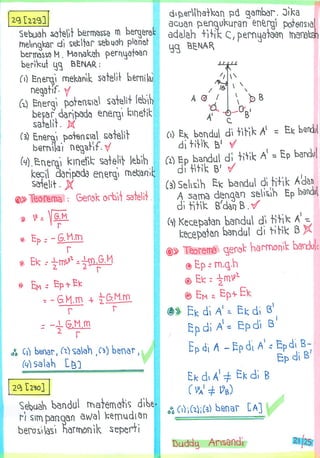 29 [229]
Sebuah satelit bermassa m bergerak
melingkar di sekitar sebuah planet
bermassa M. Manakah pernyataan
berikut yg BENAR:
(1) Energi mekanik satelit bernilai
negatif. ✓
(2) Energi potensial satelit lebih
besar daripada energi kinetik
satelit. X
(3) Energi potensial satelit
bernilai negatif. ✓
(4) Energi kinetik satelit lebih
kecil daripada energi mekanik
satelit. X
Teorema : Gerak orbit satelit
v² = G.M / r
Ep = - G.M.m / r
Ek = ½mv² = ½m.G.M / r
EM = Ep + Ek
= - G.M.m / r + ½ G.M.m / r
= - ½ G.M.m / r
∴ (1) benar, (2) salah, (3) benar,
(4) salah [B]
29 [230]
Sebuah bandul matematis dibe-
ri simpangan awal kemudian
berosilasi harmonik seperti
diperlihatkan pd gambar. Jika
acuan pengukuran energi potensial
adalah titik C, pernyataan manakah
yg BENAR
A B
A' B'
C
(1) Ek bandul di titik A' = Ek bandul
di titik B' ✓
(2) Ep bandul di titik A' = Ep bandul
di titik B' ✓
(3) Selisih Ek bandul di titik A' dan
A sama dengan selisih Ep bandul
di titik B' dan B. ✓
(4) Kecepatan bandul di titik A' =
kecepatan bandul di titik B X
Teorema gerak harmonik bandul:
Ep = m.g.h
Ek = ½mv²
EM = Ep + Ek
Ek di A' = Ek di B'
Ep di A' = Ep di B'
Ep di A - Ep di A' = Ep di B -
Ep di B'
Ek di A' ≠ Ek di B
(vA' ≠ vB)
∴ (1); (2); (3) benar [A]
Buddy Ansandi
21/25